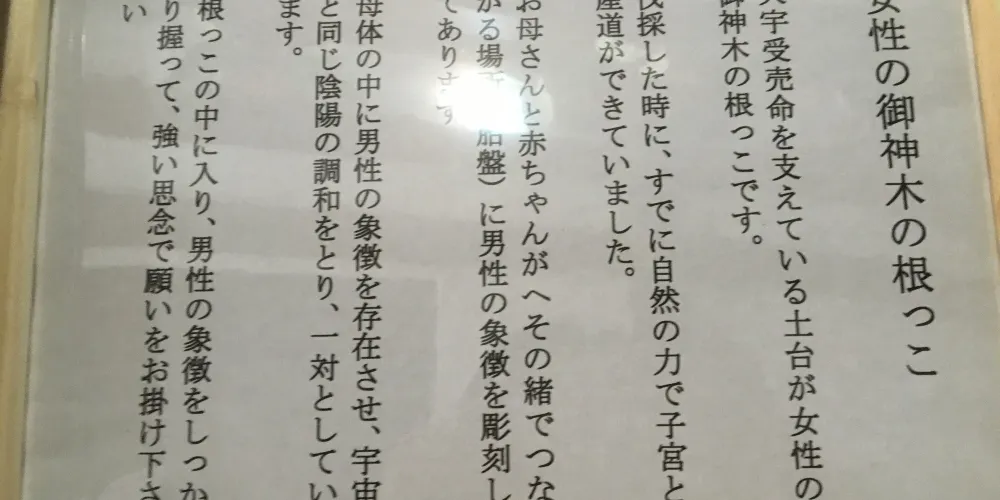 女性の御神木の根っこ
天宇受売命を支えている土台が女性の
御神木の根っこです。
伐採した時に、すでに自然の力で子宮と
産道ができていました。
お母さんと赤ちゃんがへその緒でつな
がる場所 胎盤）に男性の象徴を彫刻し
てあります
母体の中に男性の象徴を存在させ、宇宙
と同じ陰陽の調和をとり、一対としてい
ます。
根っこの中に入り、男性の象徴をしっか
り握って、強い思念で願いをお掛け下さ
い